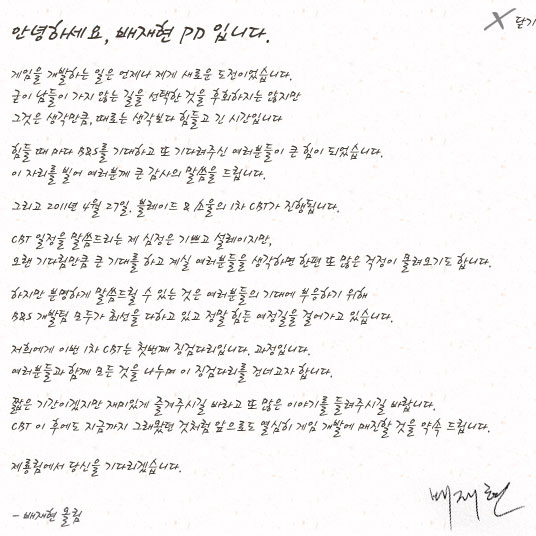 안녕하세요, 배재현 PD 입니다.
닫기
게임을 개발하는 일은 언제나 제게 새로운 도전이었습니다.
굳이 남들이 가지 않는 길을 선택한 것을 후회하지는 않지만
그것은 생각만큼, 때로는 생각보다 힘들고 긴 시간입니다
힘들 때 마다 B&S를 기대하고 또 기다려주신 여러분들이 큰 힘이 되었습니다.
이 자리를 빌어 여러분께 큰 감사의 말씀을 드립니다.
그리고 2011년 4월 27일. 블레이드 & 소울의 1차 CBT가 진행됩니다.
CBT 일정을 말씀드리는 제 심정은 기쁘고 설레이지만,
오랜 기다림만큼 큰 기대를 하고 계실 여러분들을 생각하면 한편 또 많은 걱정이 몰려오기도 합니다.
하지만 분명하게 말씀드릴 수 있는 것은 여러분들의 기대에 부응하기 위해
B&S 개발팀 모두가 최선을 다하고 있고 정말 힘든 여정길을 걸어가고 있습니다.
저희에게 이번 1차 CBT는 첫번째 징검다리입니다. 과정입니다.
여러분들과 함께 모든 것을 나누며 이 징검다리를 건너고자 합니다.
짧은 기간이겠지만 재미있게 즐겨주시길 바라고 또 많은 이야기를 들려주시길 바랍니다.
CBT 이 후에도 지금까지 그래왔던 것처럼 앞으로도 열심히 게임 개발에 매진할 것을 약속 드립니다.
제룡림에서 당신을 기다리겠습니다.
배재현
- 배재현 올림